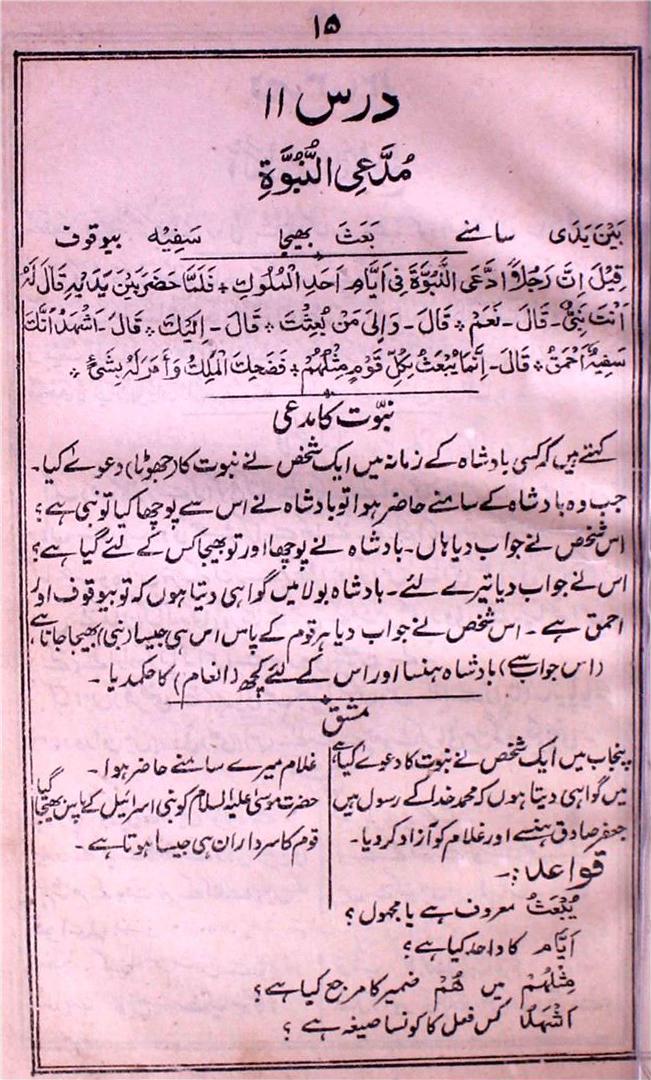 ۱۵
درس ۱۱
مُدَّعِی النُّبُوَّةِ
بَیْنَ یَدَی سامنے بَعَثَ بھیجا سَفِیْہ بیوقوف
قِیْلَ اِنَّ رَجُلًا ادَّعَی النُّبُوَّةَ فِیْ اَیَّامِ اَحَدِ الْمُلُوْكِ ٭ فَلَمَّا حَضَرَ بَیْنَ یَدَیْہِ قَالَ لَہٗ
اَنْتَ نَبِیٌّ۔ قَالَ۔ نَعَمْ ٭ قَالَ۔ وَاِلٰی مَنْ بُعِثْتَ ٭ قَالَ۔ اِلَیْكَ ٭ قَالَ۔ اَشْہَدُ اَنَّكَ
سَفِیْہٌ اَحْمَقُ ٭ قَالَ۔ اِنَّمَا یُبْعَثُ بِکُلِّ قَوْمٍ مِثْلُہُمْ ٭ فَضَحِكَ الْمَلِكُ وَاَمَرَ لَہٗ بِشَیْءٍ ٭
نبوّت کا مدعی
کہتے ہیں کہ کسی بادشاہ کے زمانہ میں ایک شخص نے نبوت کا (جھوٹا) دعوےٰ کیا۔
جب وہ بادشاہ کے سامنے حاضر ہوا تو بادشاہ نے اس سے پوچھا کیا تو نبی ہے؟
اس شخص نے جواب دیا ہاں۔ بادشاہ نے پوچھا اور تو بھیجا کس کے لئے گیا ہے؟
اس نے جواب دیا تیرے لئے۔ بادشاہ بولا میں گواہی دیتا ہوں کہ تو بیوقوف اور
احمق ہے۔ اس شخص نے جواب دیا ہر قوم کے پاس اس ہی جیسا (نبی) بھیجا جاتا ہے،
(اس جواب سے) بادشاہ ہنسا اور اس کے لئے کچھ (انعام) کا حکم دیا۔
مشق
پنجاب میں ایک شخص نے نبوت کا دعوےٰ کیا ہے
میں گواہی دیتا ہوں کہ محمد خدا کے رسول ہیں
جعفر صادق ہنسے اور غلام کو آزاد کر دیا۔
غلام میرے سامنے حاضر ہوا۔
حضرت موسیٰ علیہ السلام کو بنی اسرائیل کے پاس بھیجا گیا
قوم کا سردار ان ہی جیسا ہوتا ہے۔
قواعد:۔
یُبْعَثُ معروف ہے یا مجہول؟
اَیَّام کا واحد کیا ہے؟
مِثْلُہُمْ میں ھُمْ ضمیر کا مرجع کیا ہے؟
اَشْہَدُ کس فعل کا کونسا صیغہ ہے؟